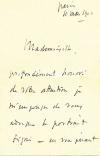 Paris
Mademoiselle,
profondément honoré
de votre attention je
m'empresse de vous
envoyer le portrait
signé — en vous priant